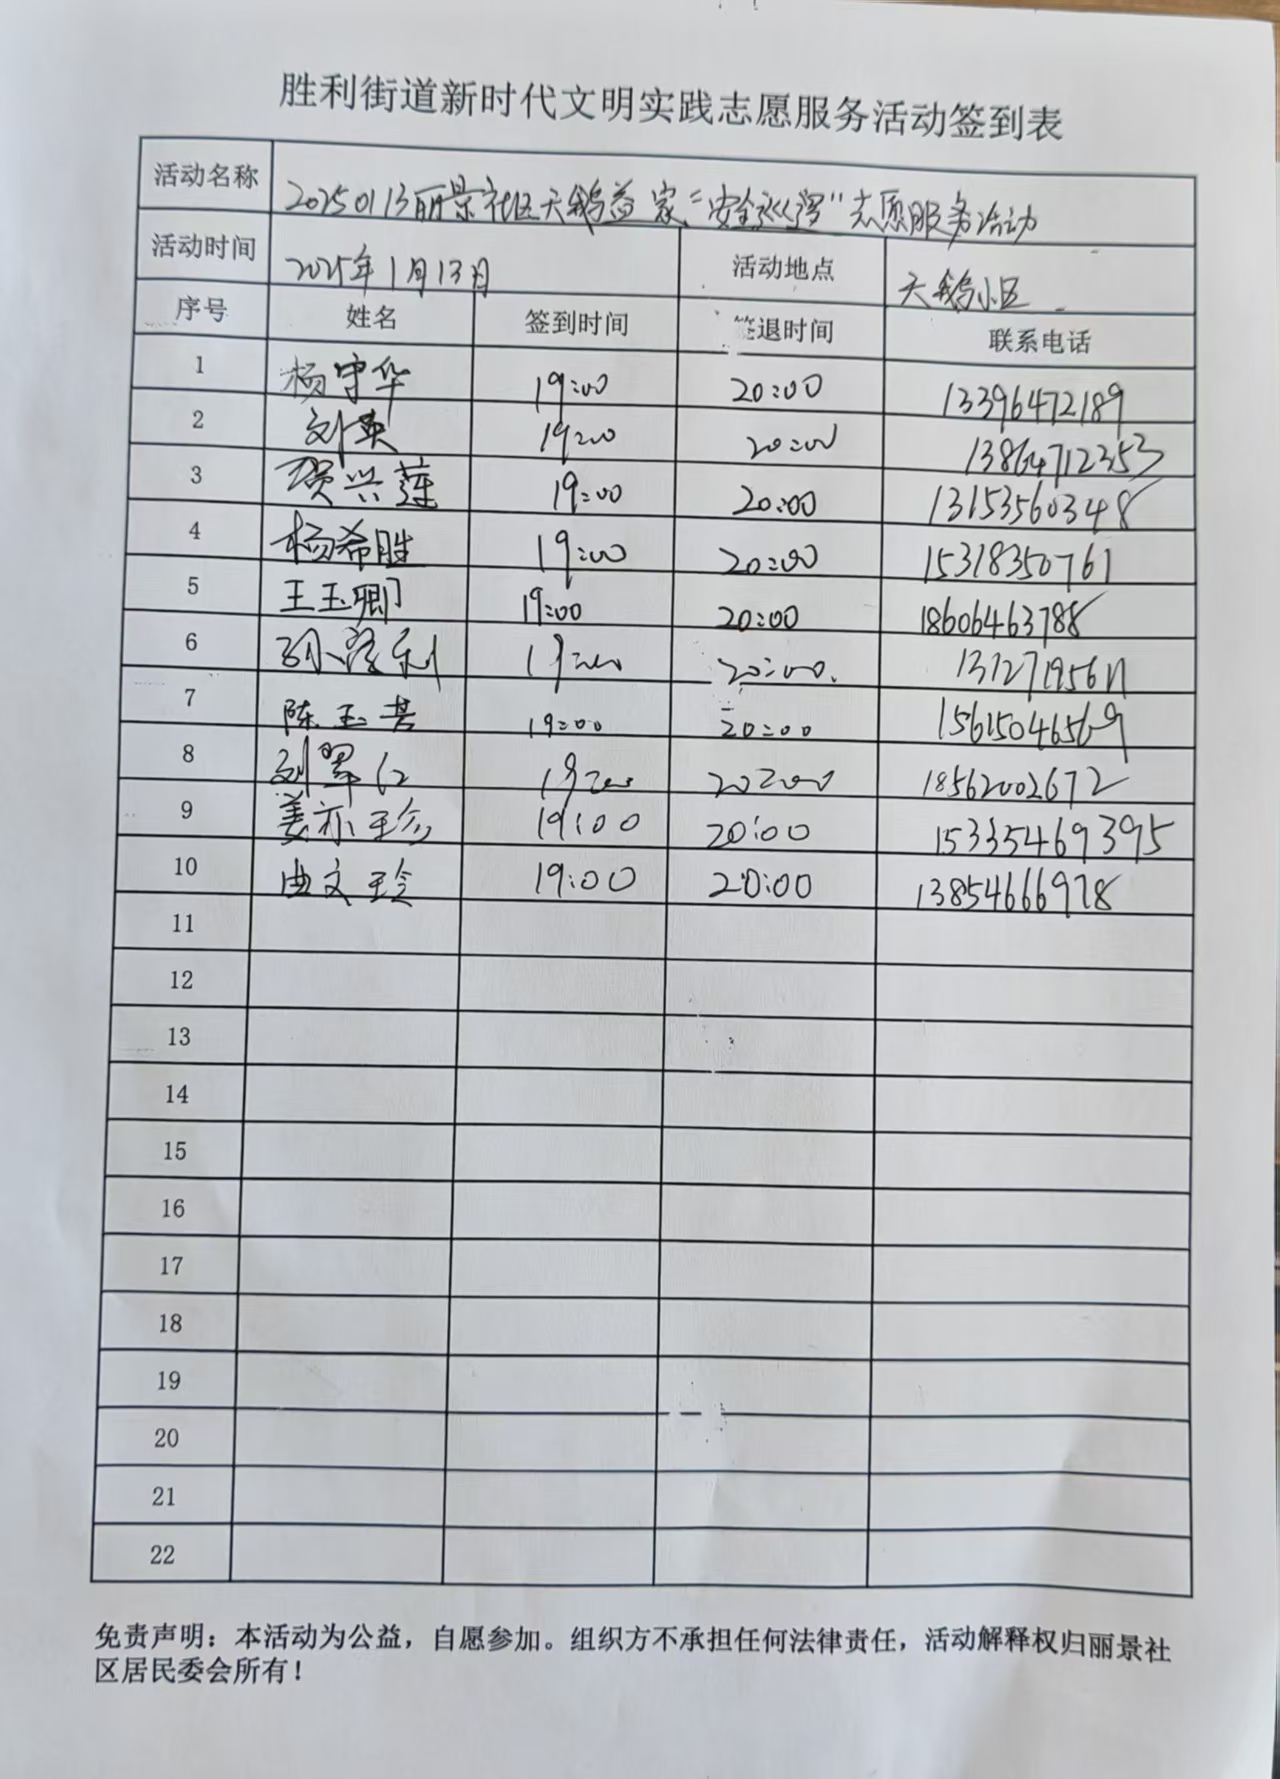 胜利街道新时代文明实践志愿服务活动签到表
活动名称 20250113丽景社区天鹅益家“安全巡逻”志愿服务活动
活动时间 2025年1月13日 活动地点 天鹅小区
序号 姓名 签到时间 签退时间 联系电话
1 杨守华 19:00 20:00 13396472189
2 刘英 19:00 20:00 13864712353
3 贺兴莲 19:00 20:00 13153560348
4 杨希胜 19:00 20:00 15318350761
5 王玉卿 19:00 20:00 18606463788
6 19:00 20:00
7 陈玉芸 19:00 20:00 15615046569
8 19:00 20:00 18562002672
9 姜亦珍 19:00 20:00 15335469395
10 曲文玲 19:00 20:00 13854666978
11
12
13
14
15
16
17
18
19
20
21
22
免责声明：本活动为公益，自愿参加。组织方不承担任何法律责任，活动解释权归丽景社
区居民委会所有！